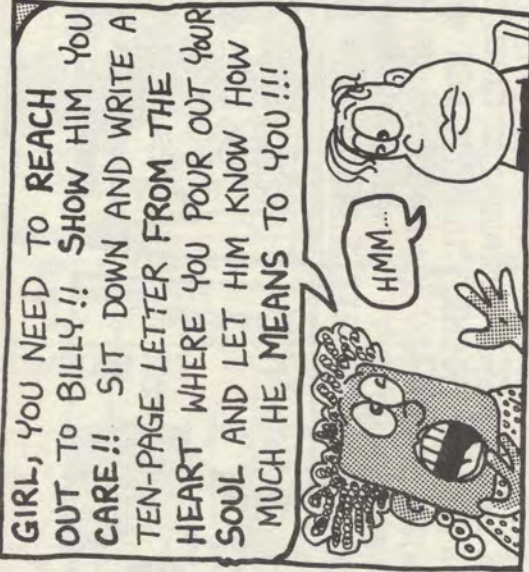 GIRL, YOU NEED TO REACH
OUT TO BILLY!! SHOW HIM YOU
CARE!! SIT DOWN AND WRITE A
TEN-PAGE LETTER FROM THE
HEART WHERE YOU POUR OUT YOUR
SOUL AND LET HIM KNOW HOW
MUCH HE MEANS TO YOU!!!
HMM...